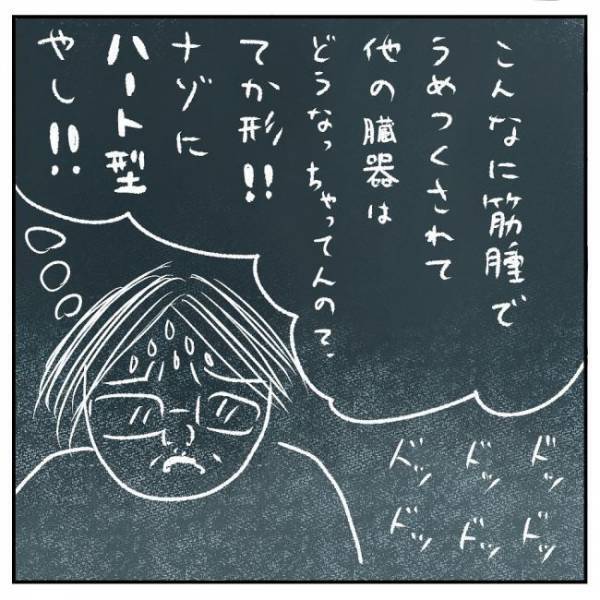 こんなに筋腫で
うめつくされて
他の臓器は
どうなっちゃってんの?、
てか形!!
ナゾに
ハート型
やし!!
ドッ ドッ ドッ
ドッ ドッ ドッ